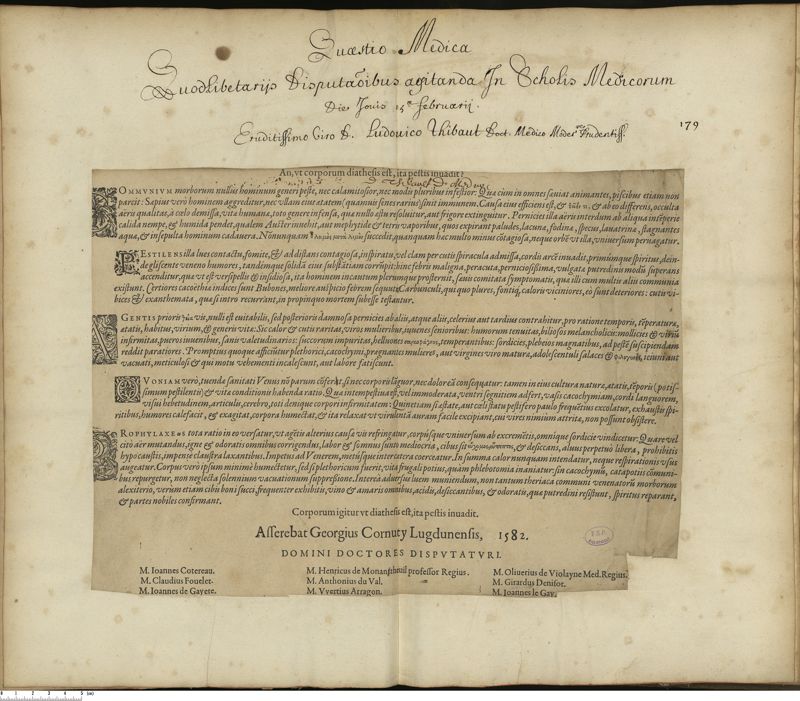 Quæstio Medica
Quodlibetarijs Disputaõibus agitanda In Scholis Medicorum
Die Jouis 15ª februarij.
Eruditissimo Viro D. Ludovico Thibaut Doct. Medico Moder Prudentiss.
179
An, vt corporum diathesis est, ita pestis inuadit?
COMMVNIVM morborum nullus hominum generi peste, nec calamitosior, nec modis pluribus infestior: Quæ cùm in omnes sæuiat animantes, piscibus etiam non
parcit: Sæpius verò hominem aggreditur, nec vllam eius ætatem (quamuis senes rarius) sinit immunem. Causa eius efficiens est, & ab eo differens, occulta
aëris qualitas, à cœlo demissa, vitæ humanæ, toto genere infensa, quæ nullo æstu resoluitur, aut frigore extinguitur. Pernicies illa aëris interdum ab aliqua intẽperie
calida nempe, & humida pendet, qualem Auster inuehit, aut mephytide & terræ vaporibus, quos expirant paludes, lacunæ, fodinæ, specus, lauatrina, stagnantes
aquæ, & insepulta hominum cadauera. Nõnunquam succedit, quanquam hæc multo minùs cõtagiosa, neque orbẽ vt illa, vniuersum peruagatur.
PESTILENS illa lues contactu, fomite, & ad distans contagiosa, inspiratu, vel clam per cutis spiracula admissa, cordis arcẽ inuadit, primúmque spiritus, dein-
de gliscente veneno humores, tandémque solidã eius substãtiam corrũpit: hinc febris maligna, peracuta, perniciosissima, vulgatæ putredinis modũ superans
accenditur, quæ vt est versipellis & insidiosa, ita hominem incautum plerumque prosternit, sæuis comitata symptomatis, quæ illi cum multis aliis communia
existunt. Certiores cacoëthiæ indices sunt Bubones, meliore auspicio febrem sequuti: Carbunculi, qui quo plures, fontiq́; caloris viciniores, eò sunt deteriores: cutis vi-
bices & exanthemata, quæ si intro recurrant, in propinquo mortem subesse testantur.
AGENTIS prioris vis, nulli est euitabilis, sed posterioris damnosa pernicies ab aliis, atque aliis, celerius aut tardius contrahitur, pro ratione temporis, tẽperaturæ,
ætatis, habitus, virium, & generis vitæ. Sic calor & cutis raritas, viros mulieribus, iuuenes senioribus: humorum tenuitas, biliosos melancholicis: mollicies & viriũ
infirmitas, pueros iuuenibus, sanis valetudinarios: succorum impuritas, helluones temperantibus: sordicies, plebeios magnatibus, ad pestẽ suscipiendam
reddit paratiores. Promptius quoque afficiũtur plethorici, cacochymi, prægnantes mulieres, aut virgines viro matura, adolescentuli salaces & ieiuni aut
vacuati, meticulosi & qui motu vehementi incalescunt, aut labore fatiscunt.
QVONIAM verò, tuendæ sanitati Venus nõ parum cõfert, si nec corporis lãguor, nec dolor eã consequatur: tamen in eius cultura naturæ, ætatis, tẽporis (potis-
simum pestilentis) & vitæ conditionis habenda ratio. Quæ intempestiua est, vel immoderata, ventri segnitiem adfert, vasis cacochymiam, cordi languorem,
visui hebetudinem, articulis, cerebro, toti denique corpori infirmitatem: Quin etiam si æstate, aut cœli statu pestifero paulo frequẽtius excolatur, exhaustis spi-
ritibus, humores calefacit, & exagitat, corpora humectat, & ita relaxat vt virulentã auram facile excipiant, cui vires nimium attritæ, non possunt obsistere.
PROPHYLAXEωs tota ratio in eo versatur, vt agẽtis alterius causæ vis refringatur, corpúsque vniuersum ab excremẽtis, omnique sordicie vindicetur: Quare vel
citò aër mutandus, igne & odoratis omnibus corrigendus, labor & somnus sunto mediocria, cibus sit & desiccans, aluus perpetuò libera, prohibitis
hypocaustis, impensè claustra laxantibus. Impetus ad Venerem, metúsque inter cætera coerceatur. In summa calor nunquam intendatur, neque respirationis vsus
augeatur. Corpus verò ipsum minimè humectetur, sed si plethoricum fuerit, vitæ frugali potius, quàm phlebotomia inaniatur: sin cacochymũ, catapotiis cõmuni-
bus repurgetur, non neglecta solennium vacuationum suppressione. Intereà aduersus luem muniendum, non tantum theriaca communi venenatorũ morborum
alexiterio, verùm etiam cibis boni succi, frequenter exhibitis, vino & amaris omnibus, acidis, desiccantibus, & odoratis, quæ putredini resistunt, spiritus reparant,
& partes nobiles confirmant.
Corporum igitur vt diathesis est, ita pestis inuadit.
Asserebat Georgius Cornuty Lugdunensis, 1582.
DOMINI DOCTORES DISPVTATVRI.
M. Ioannes Cotereau. M. Henricus de Monantheuil professor Regius. M. Oliuerius de Violayne Med. Regius.
M. Claudius Fouelet. M. Anthonius du Val. M. Girardus Denisot.
M. Ioannes de Gayete. M. Vvertius Arragon. M. Ioannes le Gay.